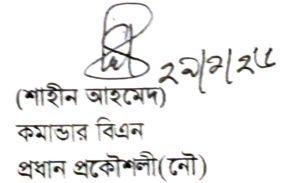 ২৯/২/২৫
(শাহীন আহমেদ)
কমান্ডার বিএন
প্রধান প্রকৌশলী(নৌ)